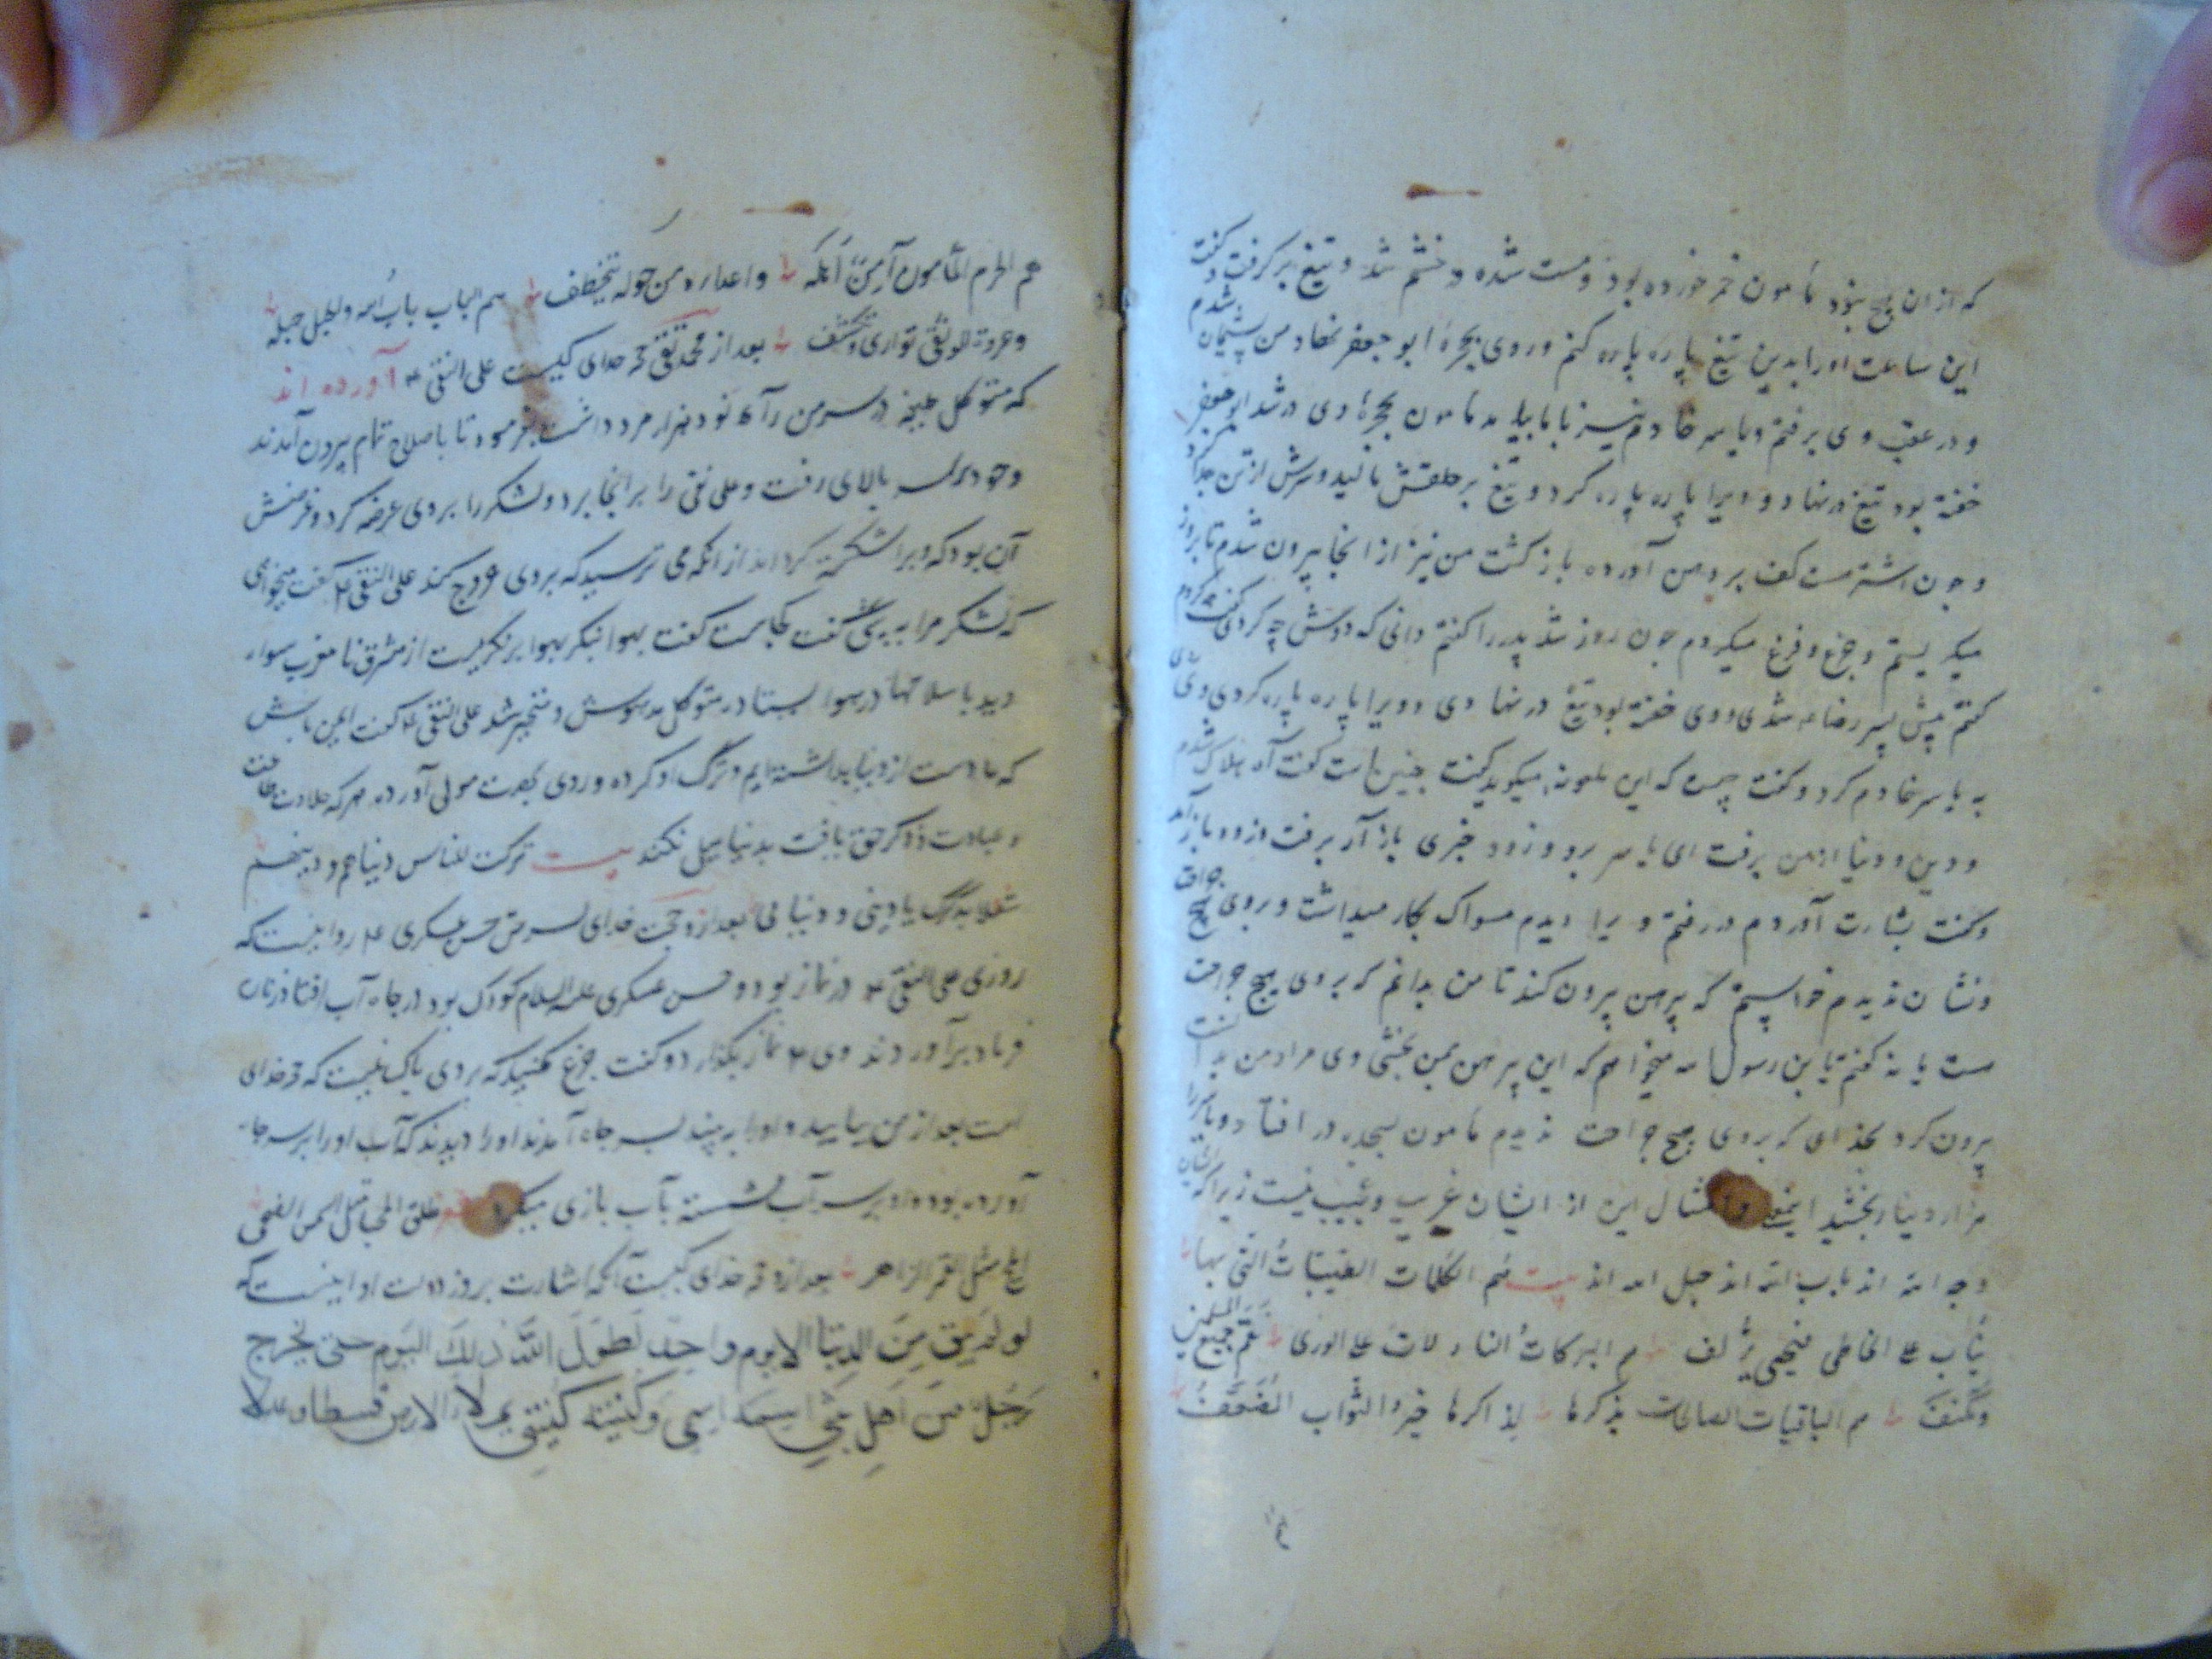 که ازان هیچ نبود مامون خمر خورده بود و مست شده در خشم شد و تیغ برگرفت و گفت
این ساعت او را بدین تیغ پاره پاره کنم و روی بحجرهٔ ابو جعفر نهاد من پشیمان شدم
و در عقب وی برفتم و یاسر خادم نیز با ما بیامد مامون بحجرهٔ وی در شد ابو جعفر
خفته بود تیغ در نهاد و ویرا پاره پاره کرد و تیغ بر حلقش مالید و سرش از تن جدا کرد
و چون اشتر مست کف بر دهن آورده باز گشت من نیز از انجا بیرون شدم تا بروز
میگریستم و جزع و فزع میکردم چون روز شد پدر را گفتم دانی که دوش چه کردی گفت چه کردم
گفتم پیش پسر رضا شدی و وی خفته بود تیغ در نهادی و ویرا پاره پاره کردی وی
به یاسر خادم کرد و گفت چیست که این ملعونه میگوید گفت چنین است گفت آه هلاک شدم
و دین و دنیا از من برفت ای یاسر برو و زود خبری باز آر برفت و زود باز آمد
و گفت بشارت آوردم در رفتم ویرا دیدم مسواک بکار میداشت و بروی هیچ جراحت
و نشان ندیدم خواستم که پیرهن بیرون کند تا من بدانم که بروی هیچ جراحت
ست یا نه گفتم یا بن رسول الله میخواهم که این پیرهن بمن بخشی وی مراد من بدانست
بیرون کرد بخدای که بروی هیچ جراحت ندیدم مامون بسجده در افتاد و یاسر را
هزار دینار بخشید این و امثال این از ایشان غریب و عجیب نیست زیرا که ایشان
وجه الله اند باب الله اند حبل الله اند بیت هم الکلمات الطیبات التی بها
یتاب علی الخاطی فیحیی و یزلف هم البرکات النازلات علی الوری تعم جمیع المسلمین
و تکنف هم الباقیات الصالحات بذکرها لذاکرها خیر الثواب المضعف
هم الحرم المأمون آمن اهله و اعداره من حوله یتخطف هم الباب باب الله و الحبل حبله
و عروته الوثقی تواری و تکشف بعد از محمد تقی حجة خدای کیست علی النقی آورده اند
که متوکل خلیفه در سر من رآه نود هزار مرد داشت بفرمود تا با صلاح تمام بیرون آمدند
و خود بر بالای رفت و علی نقی را بر انجا برد و لشکر را بر وی عرضه کرد و غرضش
آن بود که ویرا شکسته گرداند از انکه می ترسید که بر وی خروج کند علی النقی گفت میخواهی
که لشکر مرا به بینی گفت کجاست گفت بهوا بنگر بهوا برنگریست از مشرق تا مغرب سوار
دید با سلاحها در هوا ایستاده متوکل مدهوش و متحیر شد علی النقی گفت ایمن باش
که ما دست از دنیا بداشته ایم و ترک او کرده و روی بخدمت مولی آورده هرکه حلاوت طاعت
و عبادت و ذکر حق یافت بدنیا میل نکند بیت ترکت للناس دنیاهم و دینهم
شغلا بذکرک یا دینی و دنیایی بعد از و حجت خدای پسرش حسن عسکری روایتست که
روزی علی النقی در نماز بود و حسن عسکری علیه السلام کودک بود در چاه آب افتاد زنان
فریاد برآوردند وی نماز بگذارد و گفت جزع مکنید که بر وی باک نیست که حجة خدای
است بعد از من بیایید و او را به بینید بسر چاه آمدند او را دیدند که آب او را بر سر چاه
آورده بود و او بر سر آب نشسته بآب بازی میکرد
مثل القمر الزاهر بعد از و حجة خدای کیست آنکه اشارت بروز دولت او اینست که
لو لم یبق من الدنیا الا یوم واحد لطول الله ذلک الیوم حتی یخرج
رجل من اهل بیتی اسمه اسمی و کنیته کنیتی یملا الارض قسطا و عدلا